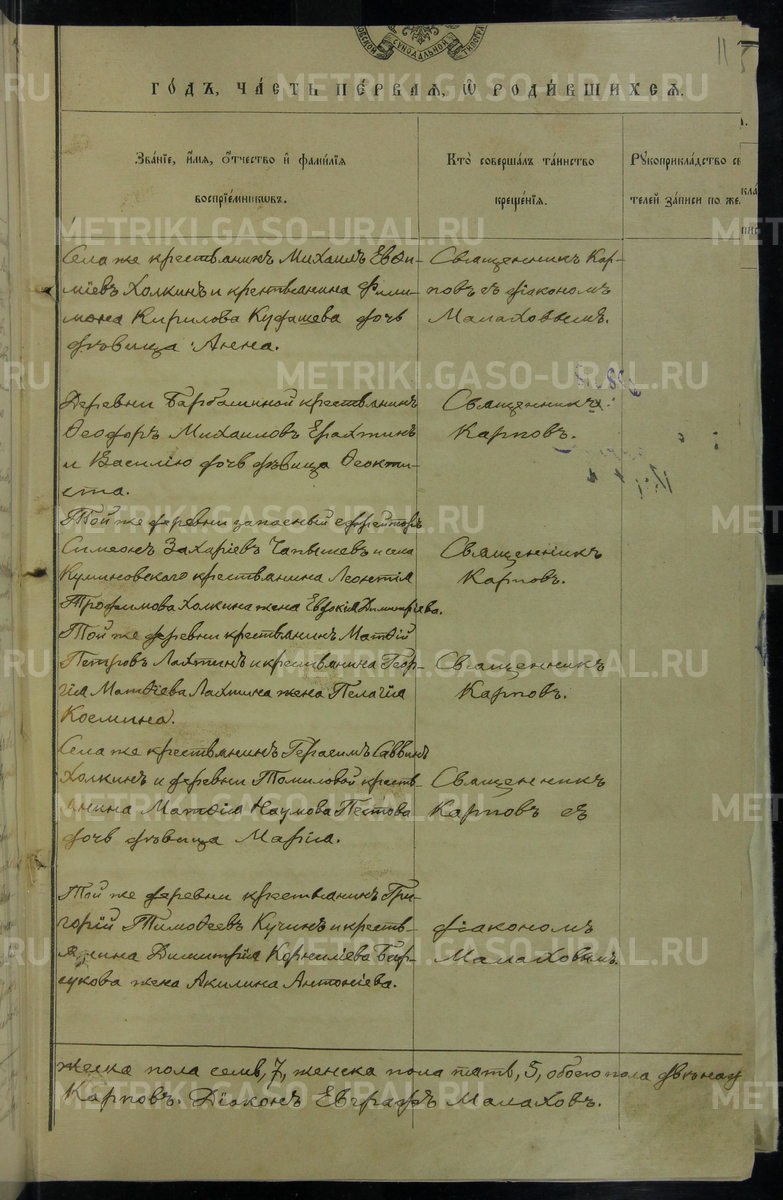 115
ГО́ДЪ, ЧА́СТЬ ПЕ́РВАѦ, Ѡ҆ РОДИ́ВШИХСѦ.
ЗВА́НЇЕ, И҆́МѦ, Ѻ҆́ТЧЕСТВО И҆ ФАМИ́ЛЇѦ
ВОСПРЇЕ́МНИКѠВЪ.
КТО̀ СОВЕРША́ЛЪ ТА́ИНСТВО
КРЕЩЕ́НЇѦ.
РꙊКОПРИКЛА́ДСТВО СВ
ТЕЛЕЙ ЗА́ПИСИ ПО ЖЕ
Села же крестьянинъ Михаилъ Евѳи-
міевъ Холкинъ и крестьянина Фили-
мона Кирилова Куфашева дочь
дѣвица Анна.
Священникъ Кар-
повъ съ діакономъ
Малаховымъ.
Деревни крестьянинъ
Ѳеодоръ Михаиловъ Ерахтинъ
и Василію дочь дѣвица Ѳеокти-
ста.
Священникъ
Карповъ.
Той же деревни запасный ефрейторъ
Симеонъ Захаріевъ Чапышевъ и села
Куминовскаго крестьянина Леонтія
Трофимова Холкина жена Евдокія Димитріева.
Священникъ
Карповъ.
Той же деревни крестьянинъ Матѳій
Петровъ Лахтинъ и крестьянина Геор-
гія Матѳіева Лахтина жена Пелагія
Космина.
Священникъ
Карповъ.
Села же крестьянинъ Герасимъ Саввинъ
Холкинъ и деревни Томиловой кресть-
янина Матѳія Наумова Пестова
дочь дѣвица Марія.
Священникъ
Карповъ съ
Той же деревни крестьянинъ Гри-
горій Тимоѳеевъ Кучинъ и кресть-
янина Димитрія Корниліева Бар-
сукова жена Акилина Антоніева.
діакономъ
Малаховымъ.
жеска пола семь, 7, женска пола пять, 5, обоего пола двѣнад
Карповъ. Діаконъ Евграфъ Малаховъ.
METRIKI.GASO-URAL.RU